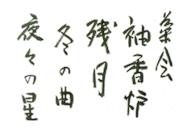 菜会
袖香炉
残月
冬の曲
夜々の星